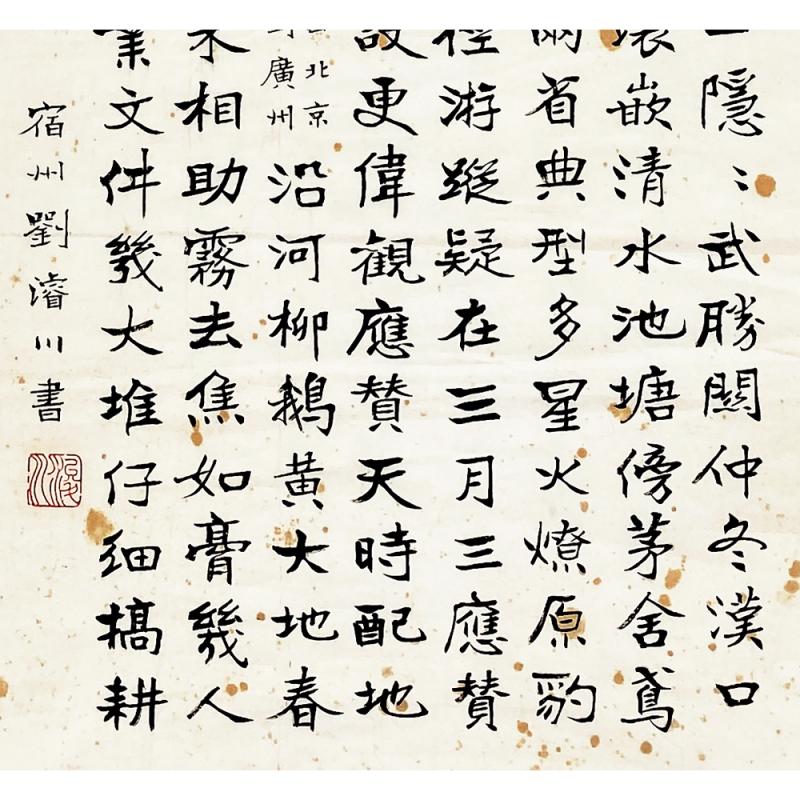 隱〻武勝關仲冬漢口
壤嵌清水池塘傍茅舍鳶
兩省典型多星火燎原豹
徑游蹤疑在三月三應贊
設更偉觀應贊天時配地
北京
廣州
沿河柳鵝黃大地春
相助霧去焦如膏幾人
業文件幾大堆仔細搞耕
宿州劉濬川書